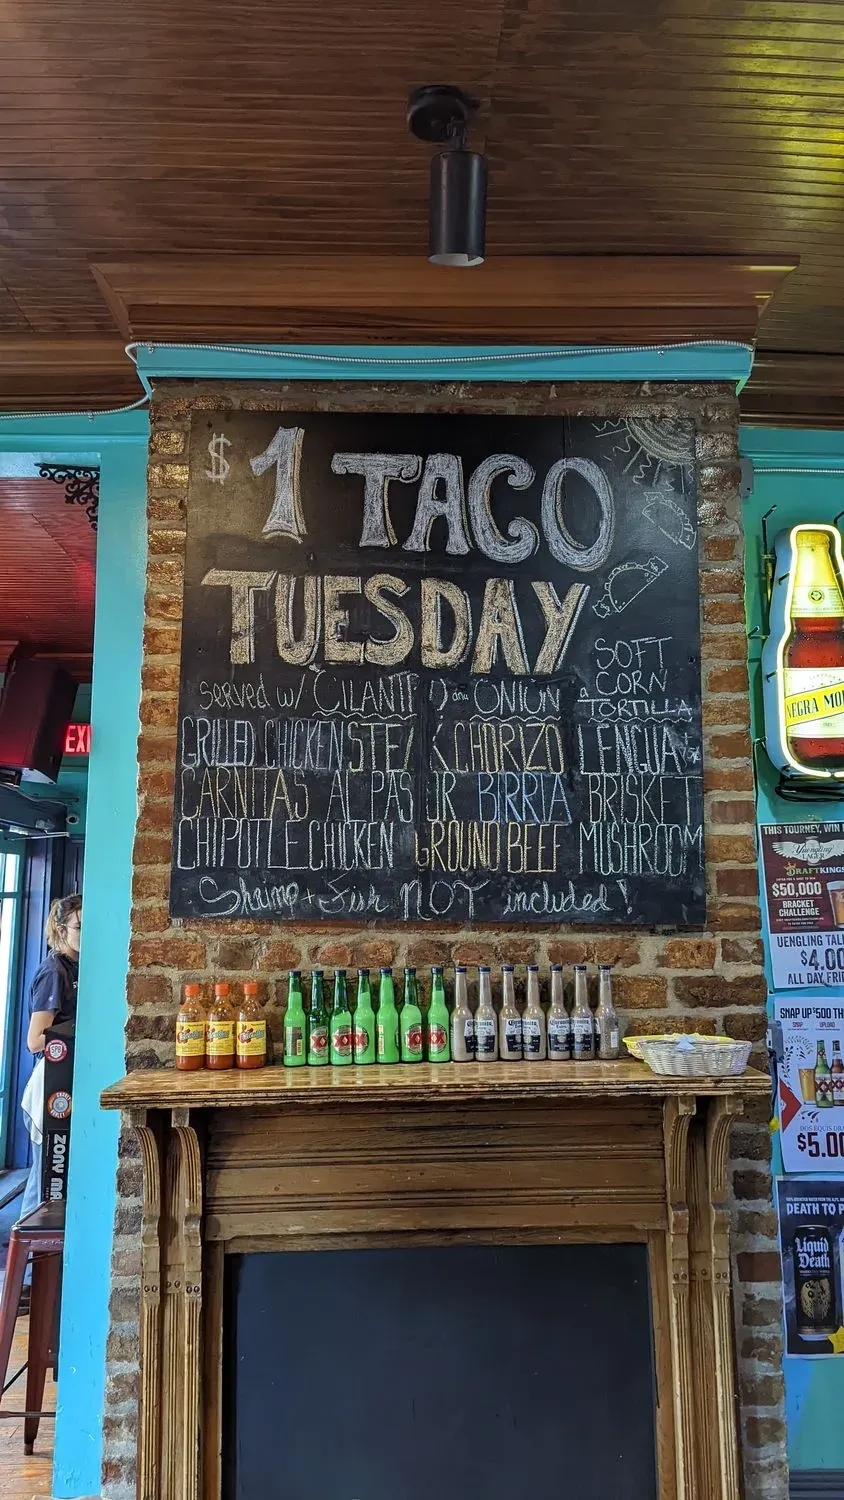 $1 TACO
TUESDAY
SERVED W/ CILANTRO and ONION
SOFT
CORN
TORTILLA
GRILLED CHICKEN STEAK CHORIZO LENGUA
CARNITAS AL PASTOR BIRRIA BRISKET
CHIPOTLE CHICKEN GROUND BEEF MUSHROOM
Shrimp + Fish NOT included!
EXI
NEGRA MO
XX
XX
XX
XX
ZONY MA
THIS TOURNEY, WIN
Yuengling
LAGER
DRAFTKINGS
$50,000
BRACKET
CHALLENGE
UENGLING TAL
$4.00
ALL DAY FRI
SNAP UP $500 TH
SNAP UPLOAD
DOS EQUIS DRA
$5.00
DEATH TO P
Liquid
Death